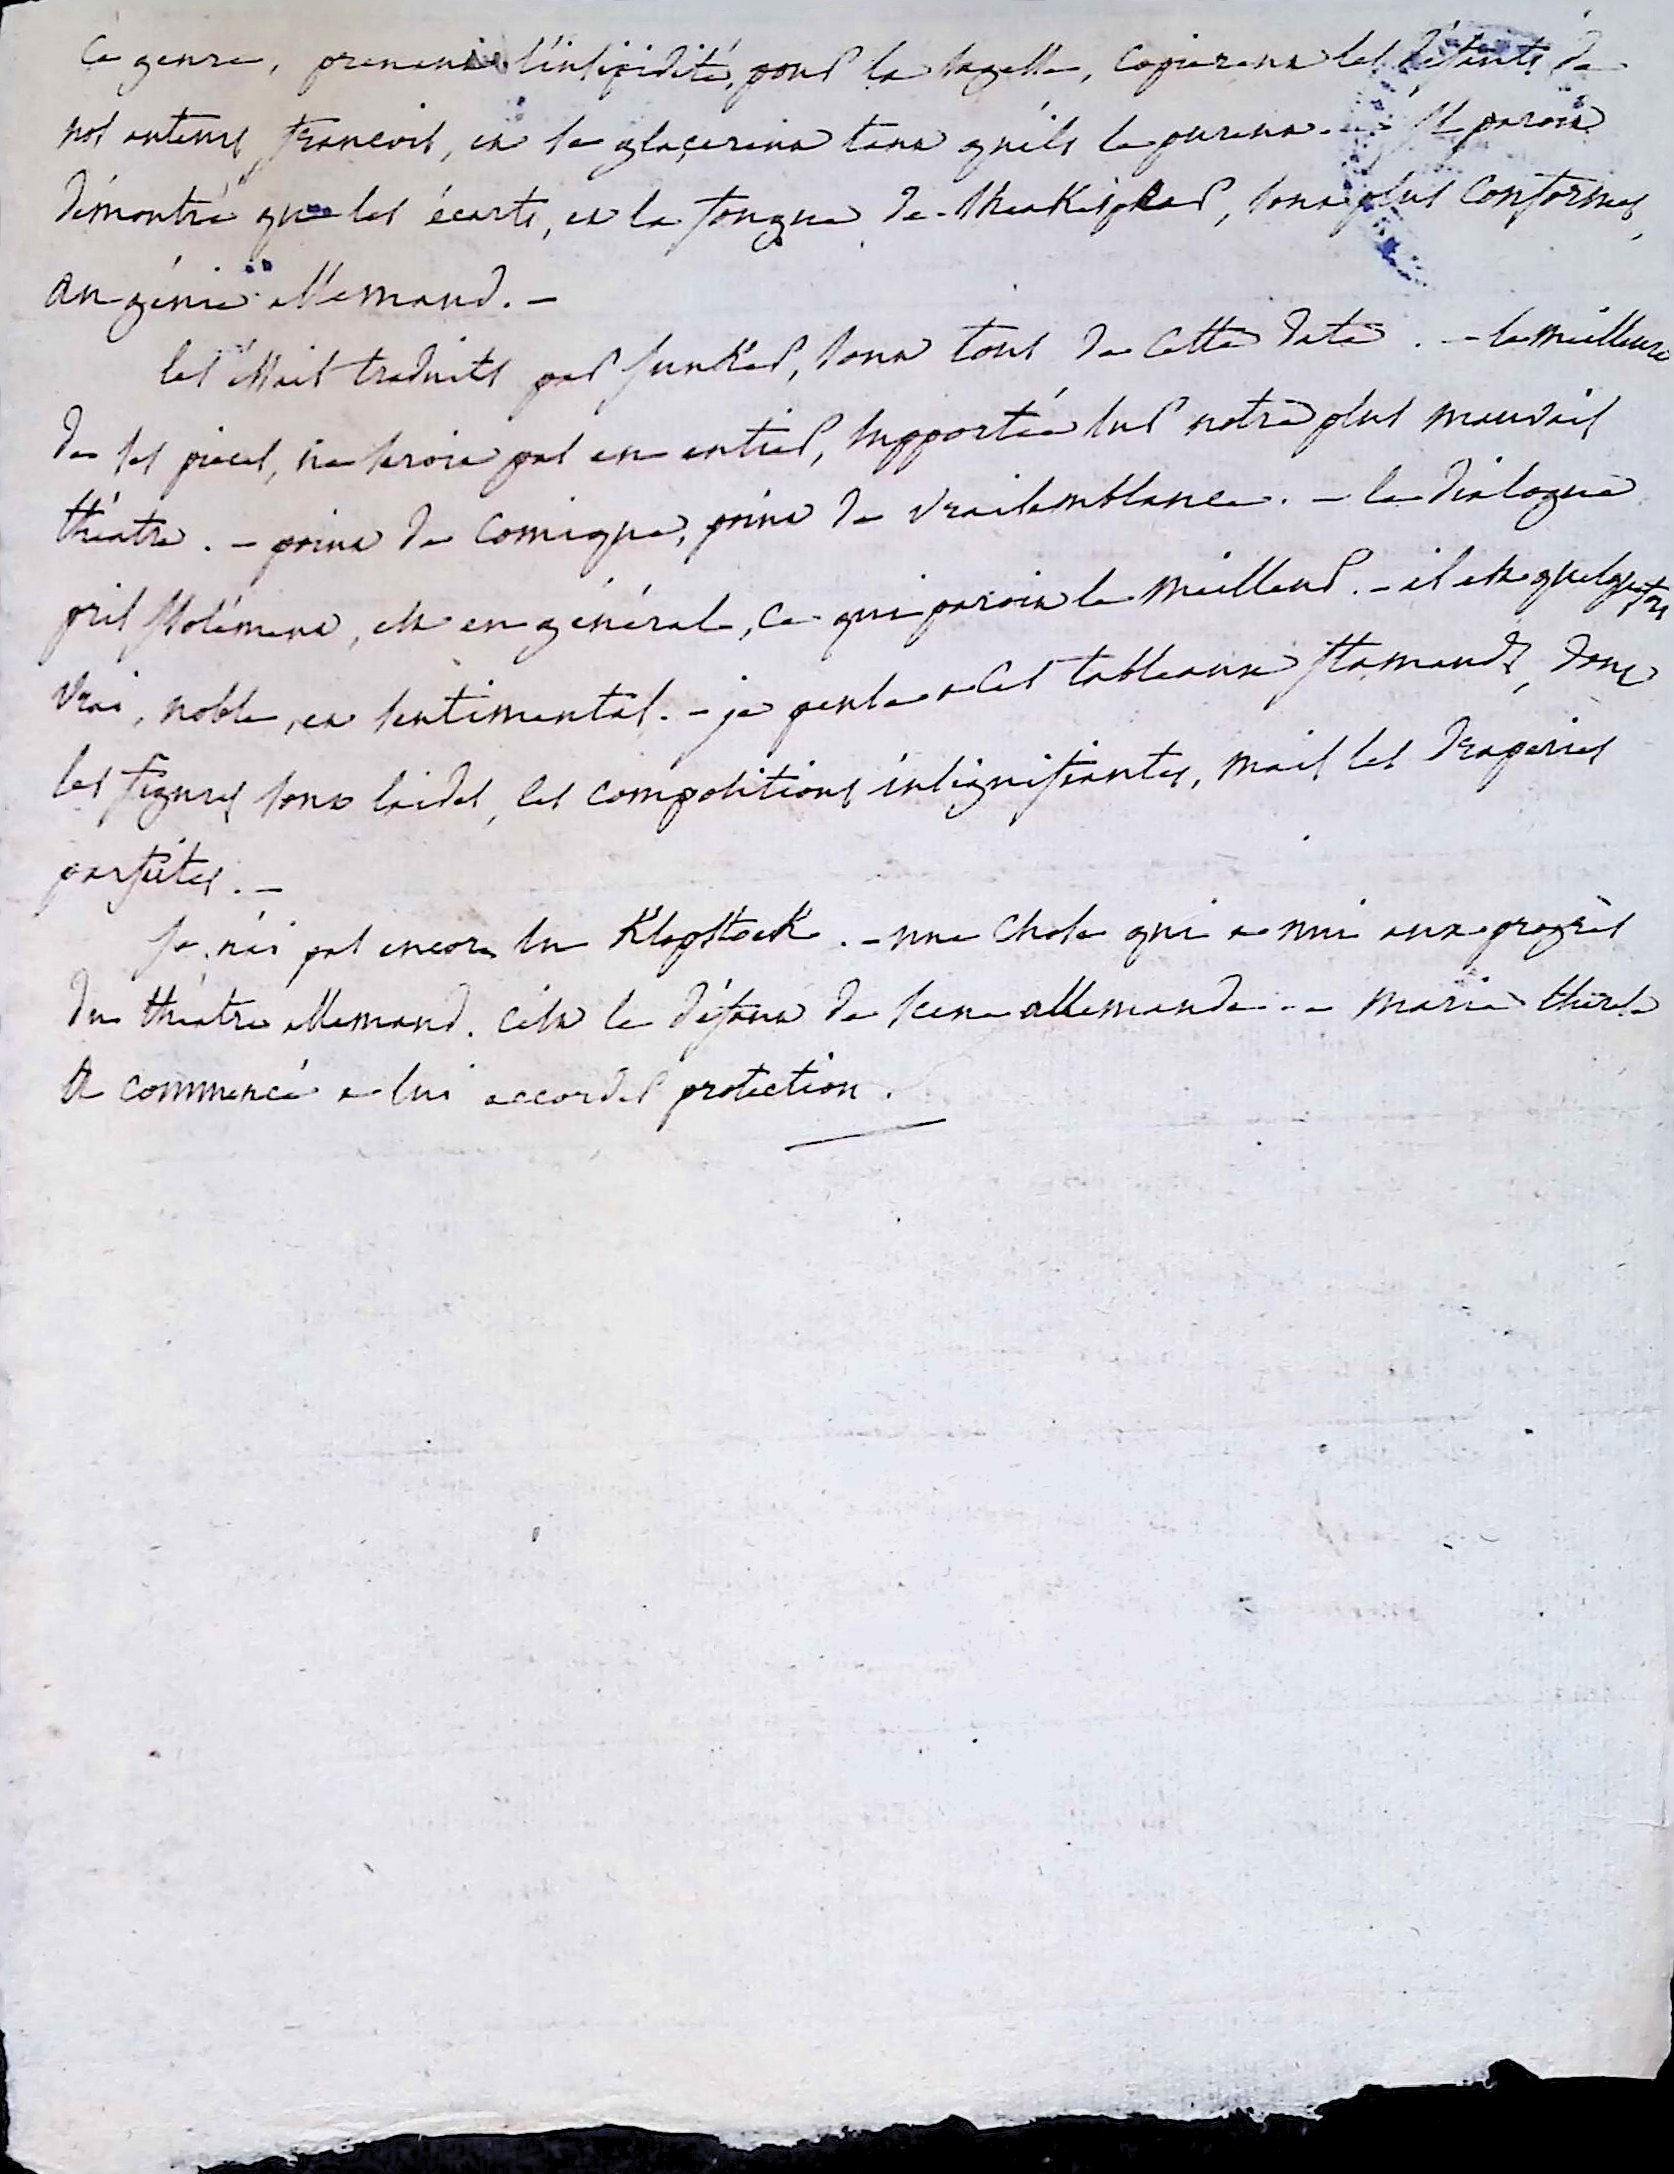 ce genre, prenant l'insipidité, pour la sagesse, copierent les défauts de
nos auteurs françois, et se glacerent tant qu'ils le purent. - il paroit
démontré que les écarts, et la fougue de Sheakespear, sont plus conformes,
au génie allemand. -
les essais traduits par Junker, sont tous de cette date. - la meilleure
de ses pieces, ne seroit pas en entier, supportée sur notre plus mauvais
théatre. - point de comique, point de vraisemblance. - le dialogue
pris isolément, est en général, ce qui paroit le meilleur. - il est quelquefois
vrai, noble, et sentimental. - je pense a ces tableaux flamands, dont
les figures sont laides, les compositions insignifiantes, mais les draperies
parfaites. -
Je n'ai pas encore lu Klopstock. - une chose qui a nui aux progrès
du théatre allemand. c'est le défaut de scene allemande. - Marie therese
a commencé a lui accorder protection.